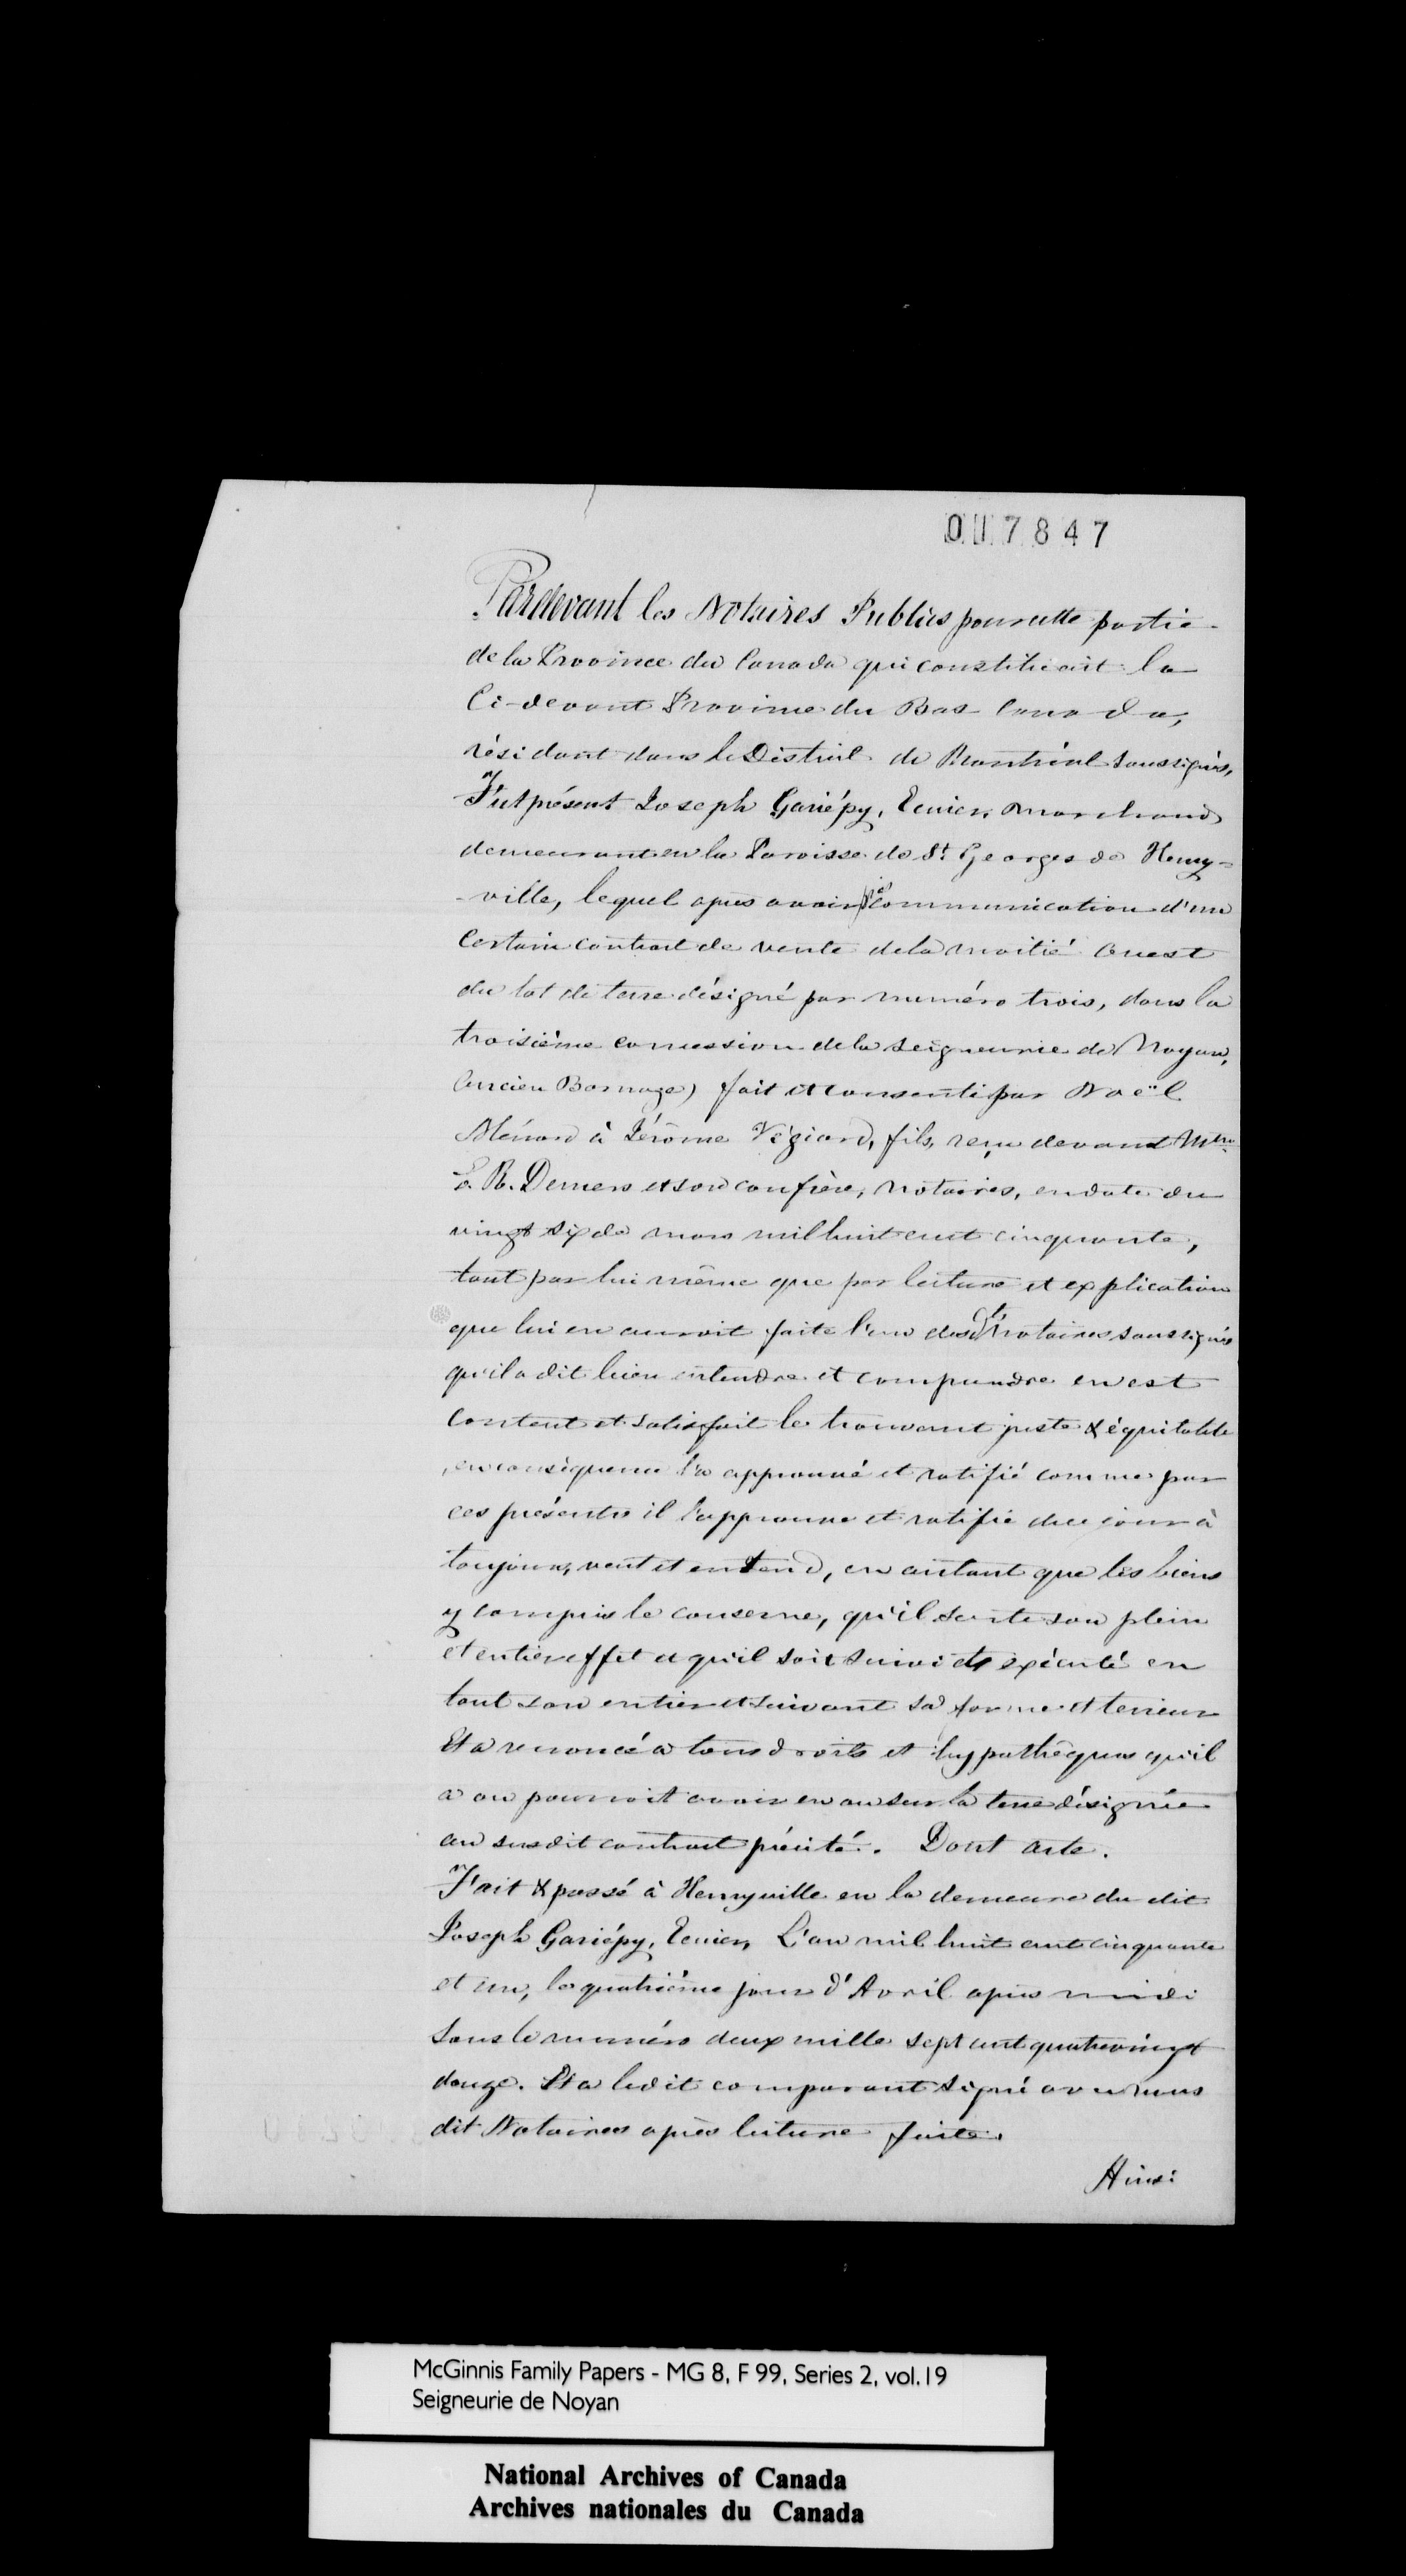 017847
Pardevant les Notaires Publics pour cette partie
de la Province du Canada qui constituait la
Ci-devant Province du Bas Canada,
résidant dans le District de Montréal soussignés,
Fut présent Joseph Gariépy, Ecuier, marchand
demeurant en la Paroisse de St. Georges de Henry-
-ville, lequel après avoir communication d'un
Certain contract de vente de la moitié Ouest
du lot de terre désigné par numéro trois, dans la
troisième concession de la Seigneurie de Noyan,
(Ancien Bornage) fait et consenti par Noël
Ménard à Jérôme Végiard, fils, reçu devant Mtre
E. R. Demers et son confrère, notaires, en date du
vingt six de mars mil huit cent cinquante,
tant par lui même que par lecture et explication
que lui en auroit faite l'un des dts Notaires soussignés
qu'il a dit bien entendre et comprendre en est
Content et satisfait le trouvant juste & équitable
, en conséquence l'a approuvé et ratifié comme par
ces présentes il l'approuve et ratifie de ce jour à
toujours, veut et entend, en autant que les biens
y compris le conserne, qu'il sorte son plein
et entier effet et qu'il soit suivi et exécuté en
tout son entier et suivant sa forme et teneur
Et a renoncé a tous droits et hypothèques qu'il
a ou pourroit avoir en ou sur la terre désignée
au susdit contract précité. Dont acte.
Fait & passé à Henryville en la demeure du dit
Joseph Gariépy, Ecuier, L'an mil huit cent cinquante
et un, le quatrième jour d'Avril après midi
Sous le numéro deux mille sept cent quatrevingt
douze. Et a le dit comparant signé avec nous
dit Notaires après lecture faite.
Ainsi
McGinnis Family Papers - MG 8, F 99, Series 2, vol.19
Seigneurie de Noyan
National Archives of Canada
Archives nationales du Canada